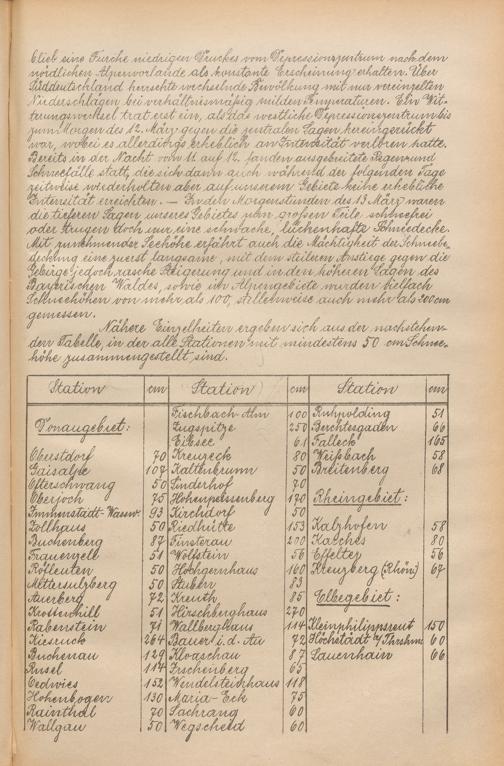 blieb eine Furche niedrigen Druckes vom Depressionszentrum nach dem
nördlichen Alpenvorlande als konstante Erscheinung erhalten. Über
Süddeutschland herrschte wechselnde Bewölkung mit nur vereinzelten
Niederschlägen bei verhältnismäßig milden Temperaturen. Ein Wit-
terungswechsel trat erst ein, als das westliche Depressionszentrum bis
zum Morgen des 12. März gegen die zentralen Lagen hereingerückt
war, wobei es allerdings erheblich an Intensität verloren hatte.
Bereits in der Nacht vom 11. auf 12. fanden ausgebreitete Regen und
Schneefälle statt, die sich dann auch während der folgenden Tage
zeitweise wiederholten aber auf unserem Gebiete keine erhebliche
Intensität erreichten. — In den Morgenstunden des 13. März waren
die tieferen Lagen unseres Gebietes zum großen Teile schneefrei
oder trugen doch nur eine schwache, lückenhafte Schneedecke.
Mit zunehmender Seehöhe erfährt auch die Mächtigkeit der Schneebe-
deckung eine zuerst langsame, mit dem steileren Anstiege gegen die
Gebirge jedoch rasche Steigerung und in den höheren Lagen des
Bayrischen Waldes, sowie im Alpengebiete wurden vielfach
Schneehöhen von mehr als 100, stellenweise auch mehr als 200 cm
gemessen.
Nähere Einzelheiten ergeben sich aus der nachstehen-
den Tabelle, in der alle Stationen mit mindestens 50 cm Schnee-
höhe zusammengestellt sind.
Station cm Station cm Station cm
Donaugebiet:
Oberstdorf 70
Gaisalpe 107
Ofterschwang 50
Oberjoch 75
Immenstadt-Wasserw. 93
Zollhaus 50
Buchenberg 87
Frauenzell 51
Röfleuten 50
Mittersulzberg 50
Auerberg 72
Knottenhill 51
Rabenstein 71
Kiesruck 264
Buchenau 129
Rusel 114
Oedwies 152
Hohenbogen 130
Rainthal 70
Wallgau 50
Fischbach Alm 100
Zugspitze 250
Eibsee 61
Kreuzeck 80
Kaltenbrunn 50
Linderhof 70
Hohenpeissenberg 170
Kirchdorf 50
Riedhütte 153
Finsterau 200
Wolfstein 56
Hochgernhaus 160
Stuben 83
Kreuth 85
Hirschberghaus 270
Wallberghaus 114
Bauer i. d. Au 72
Klooaschau 87
Irschenberg 65
Wendelsteinhaus 118
Maria-Eck 75
Sachrang 60
Wegscheid 60
Ruhpolding 51
Berchtesgaden 66
Falleck 165
Weißbach 58
Breitenberg 68
Rheingebiet:
Kalzhofen 58
Kalches 80
Effelter 56
Kreuzberg (Rhön) 67
Elbegebiet:
Kleinphilippsreut 150
Höchstädt b/Thrshm 60
Lauenhain 66